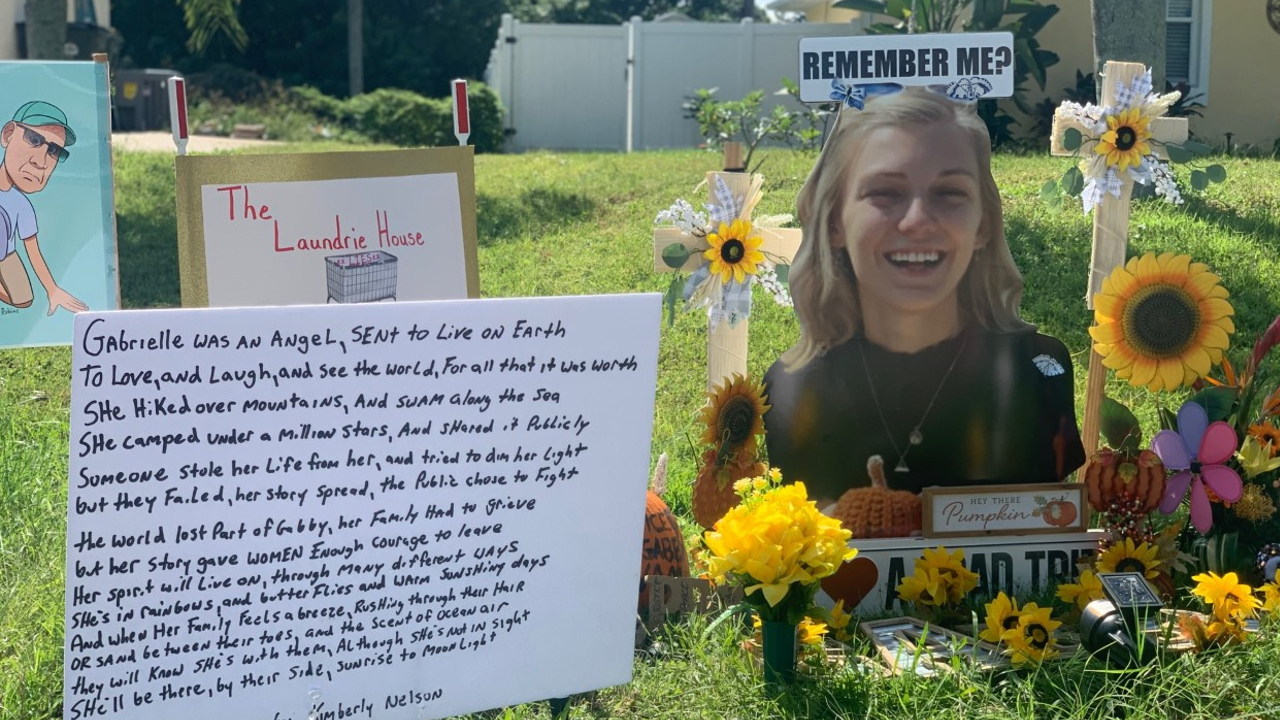 REMEMBER ME?
The
Laundrie House
LIES
Gabrielle was an Angel, sent to Live on Earth
To Love, and Laugh, and see the world, For all that it was worth
SHe Hiked over mountains, And swam along the sea
SHe camped under a million stars, And shared it Publicly
Someone stole her Life from her, and tried to dim her Light
but they Failed, her story spread, the Public chose to Fight
the world lost Part of Gabby, her Family Had to grieve
but her story gave women Enough courage to leave
Her spirit will Live on, through many different ways
SHe's in rainbows, and butterflies and warm sunshiny days
And when Her Family feels a breeze, Rushing through their Hair
OR sand between their toes, and the scent of ocean air
they will know SHe's with them, Although SHe's not in sight
SHe'll be there, by their side, sunrise to moonlight
by Kimberly Nelson
HEY THERE
Pumpkin
A ROAD TRI
GABB
Robins